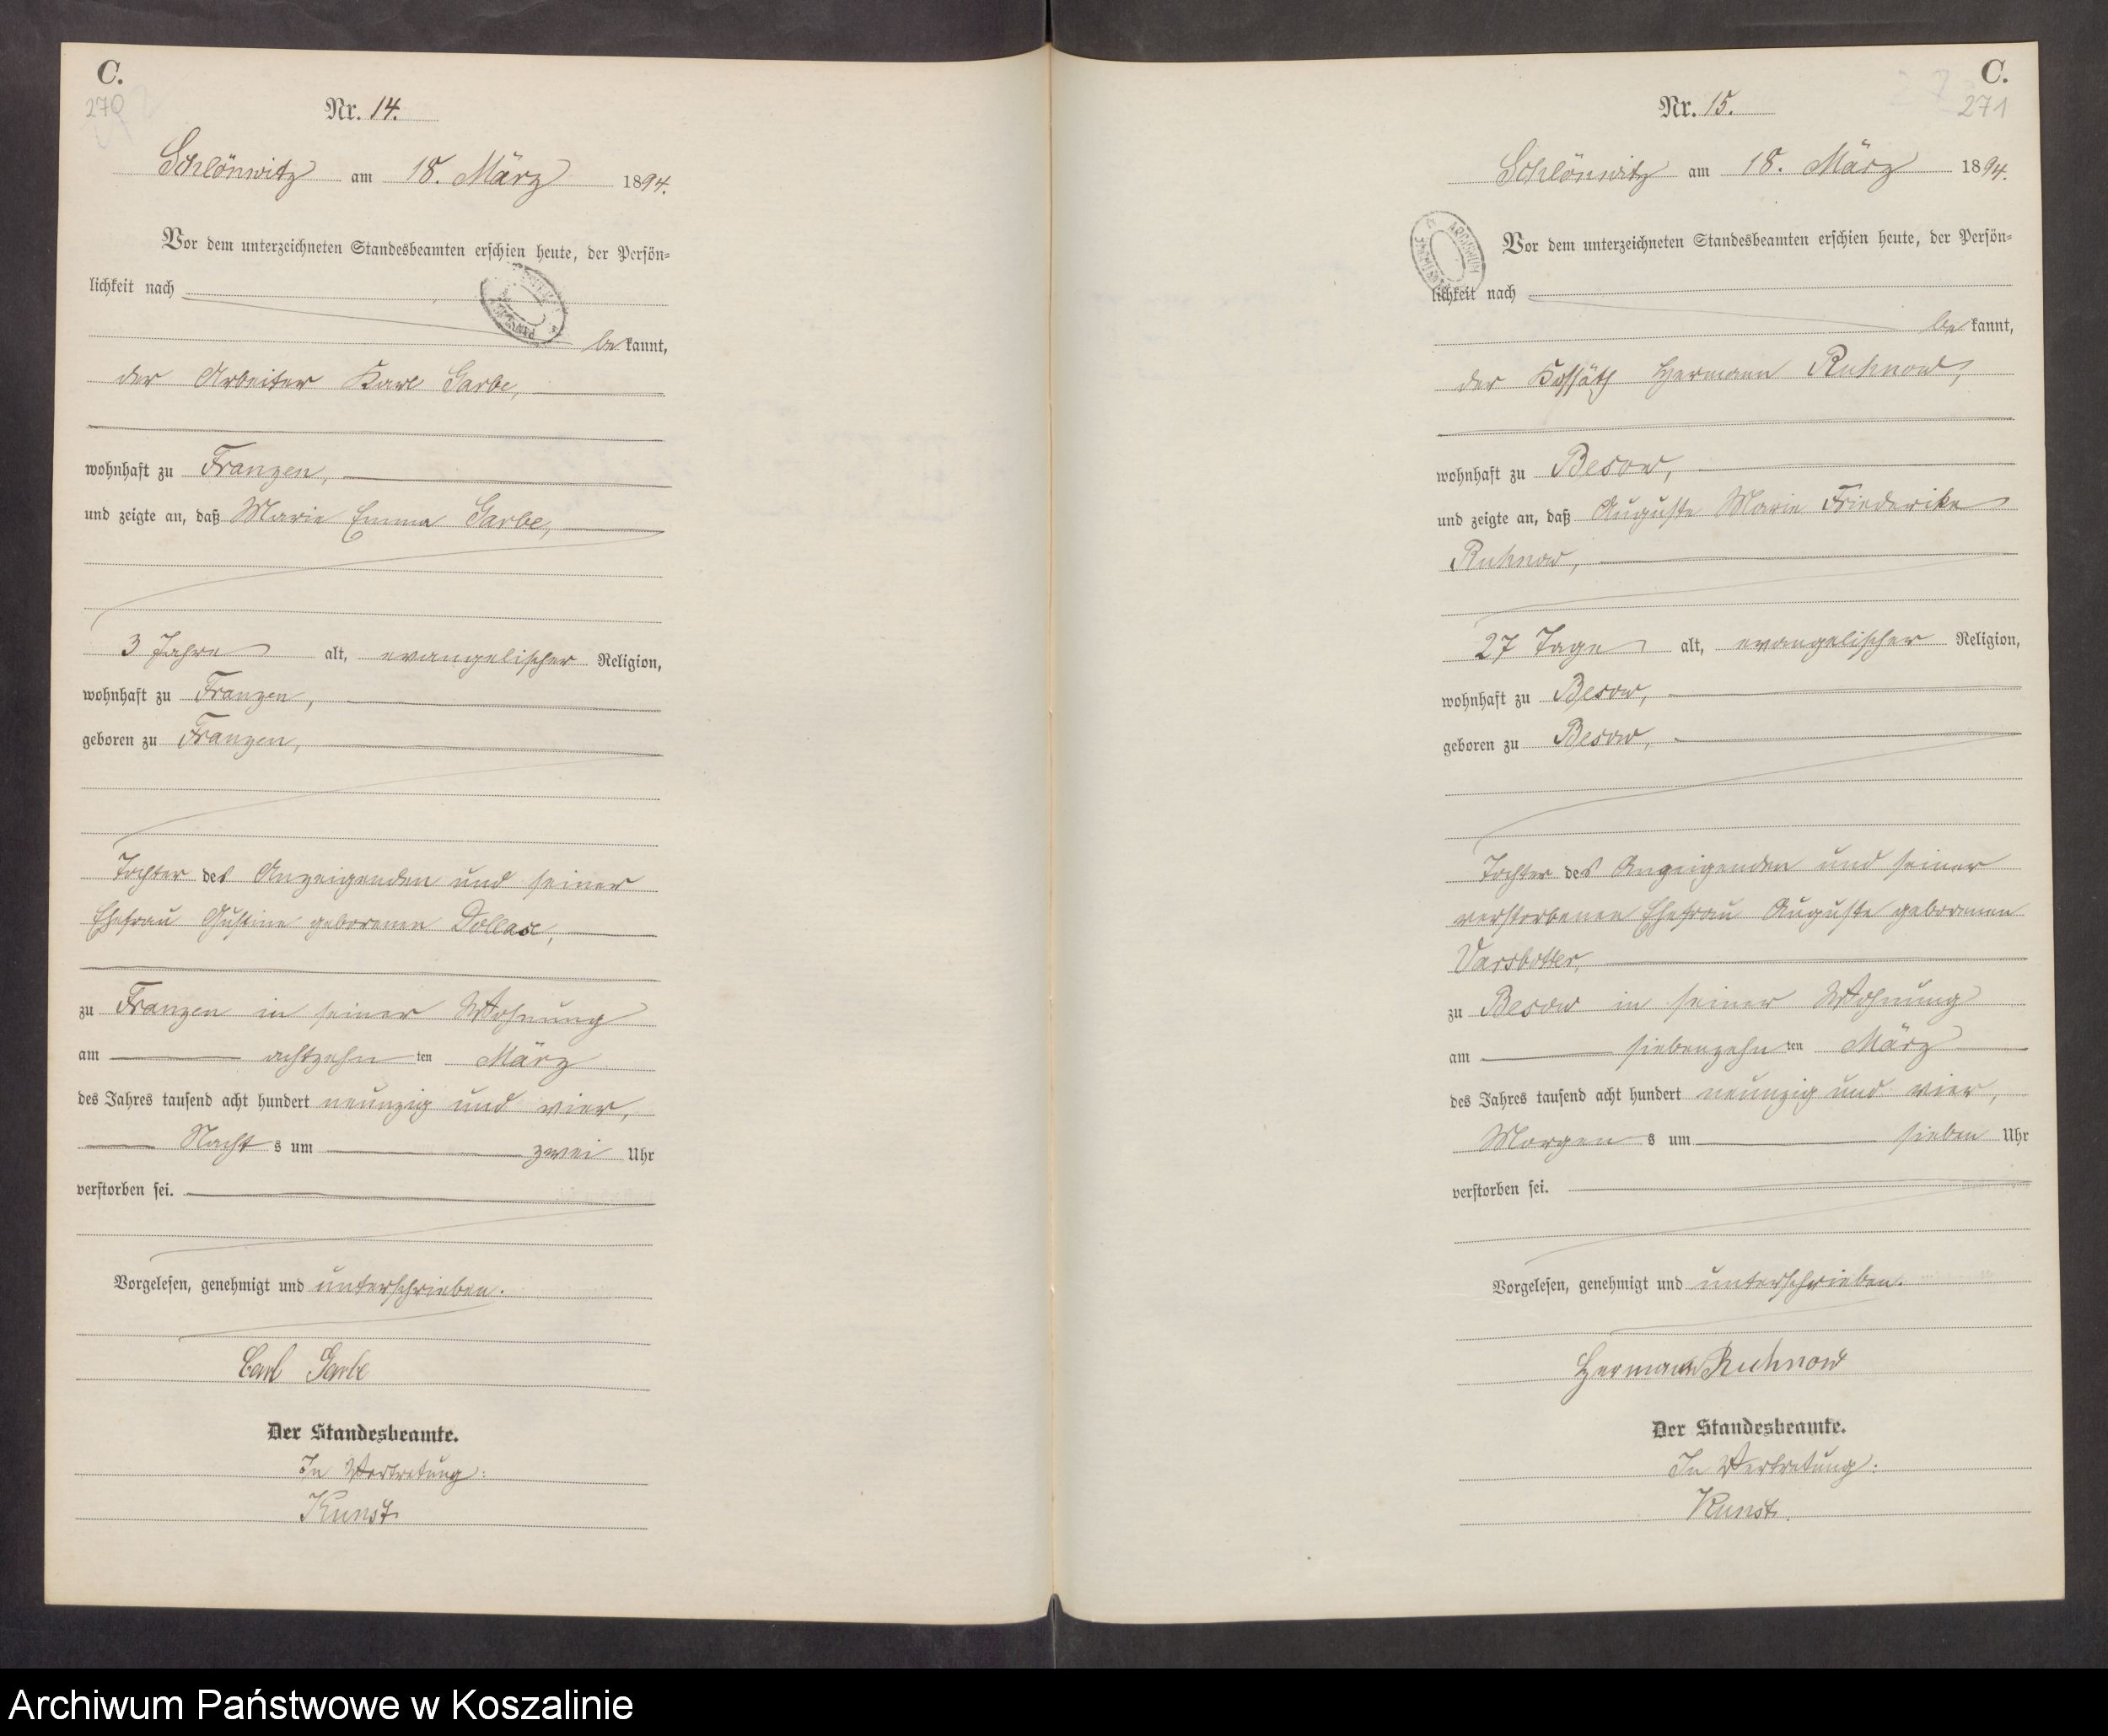 C.
270
Nr. 14.
Schlönwitz am 18. März 1894.
Vor dem unterzeichneten Standesbeamten erschien heute, der Persön-
lichkeit nach
be kannt,
der Arbeiter Karl Garbe,
wohnhaft zu Franzen,
und zeigte an, daß Marie Emma Garbe,
3 Jahre alt, evangelischer Religion,
wohnhaft zu Franzen,
geboren zu Franzen,
Tochter des Anzeigenden und seiner
Ehefrau Justine geborenen
zu Franzen in seiner Wohnung
am achtzehn ten März
des Jahres tausend acht hundert neunzig und vier,
Nacht s um zwei Uhr
verstorben sei.
Vorgelesen, genehmigt und unterschrieben.
Carl Garbe
Der Standesbeamte.
In Vertretung:
Kunst
C.
271
Nr. 15.
Schlönwitz am 18. März 1894.
Vor dem unterzeichneten Standesbeamten erschien heute, der Persön-
lichkeit nach
be kannt,
der Kossäth Hermann Ruhnow,
wohnhaft zu Besow,
und zeigte an, daß Auguste Marie Friederike
Ruhnow,
27 Tage alt, evangelischer Religion,
wohnhaft zu Besow,
geboren zu Besow,
Tochter des Anzeigenden und seiner
verstorbenen Ehefrau Auguste geborenen
Varsbotter,
zu Besow in seiner Wohnung
am siebenzehn ten März
des Jahres tausend acht hundert neunzig und vier,
Morgen s um sieben Uhr
verstorben sei.
Vorgelesen, genehmigt und unterschrieben.
Hermann Ruhnow
Der Standesbeamte.
In Vertretung:
Kunst.
Archiwum Państwowe w Koszalinie